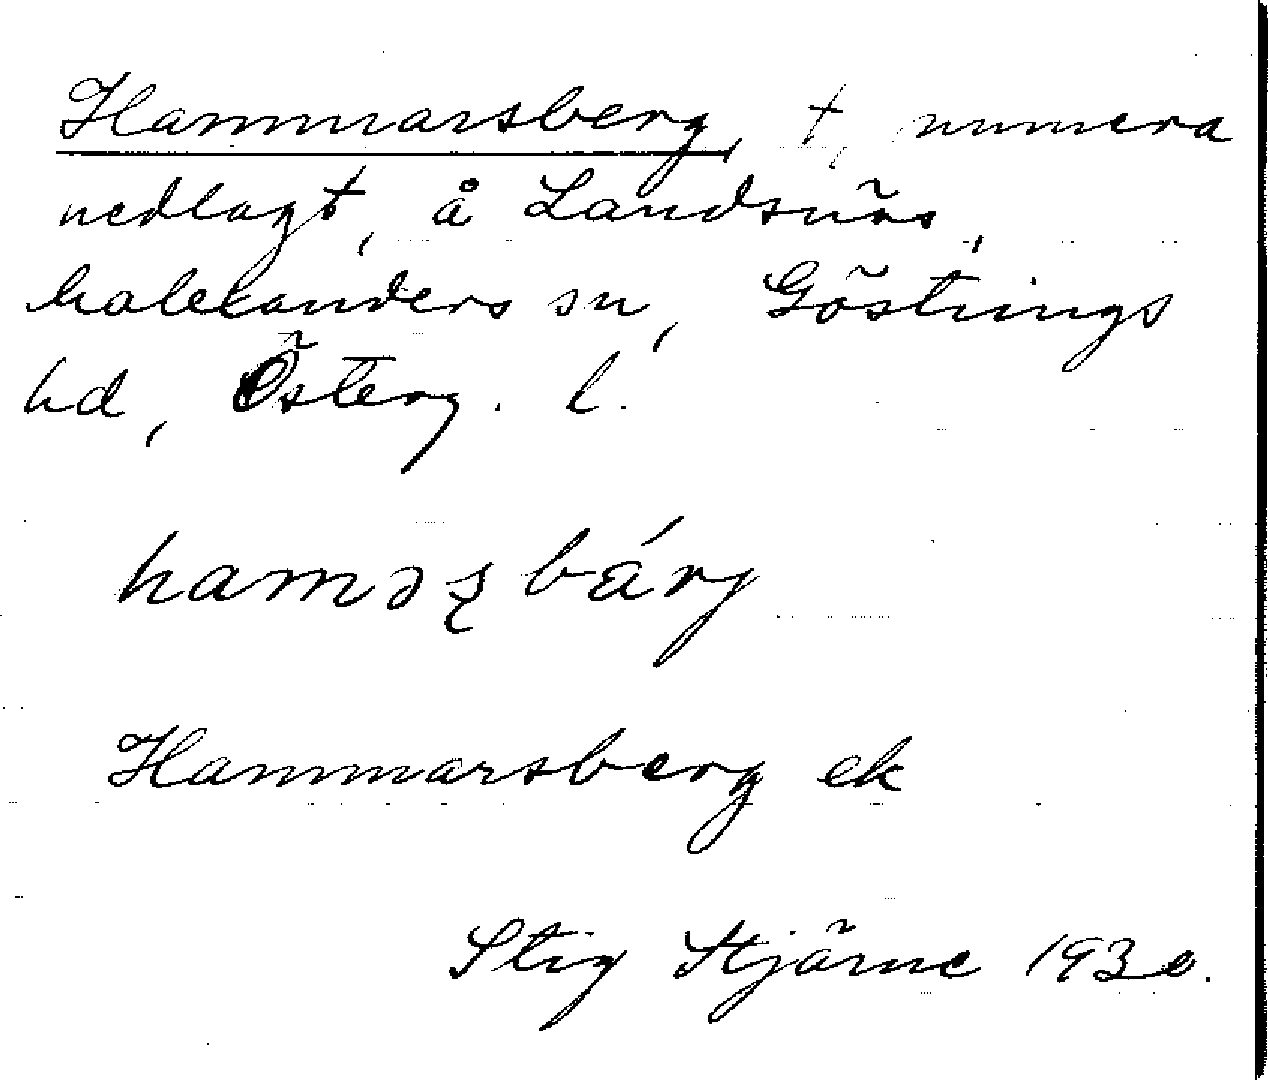 Hammarsberg, t, numera
nedlagt, å Landsnäs,
Malexanders sn, Göstrings
hd, Österg. l.
haməʂbárj
Hammarsberg ek
Stig Stjärne 1930.